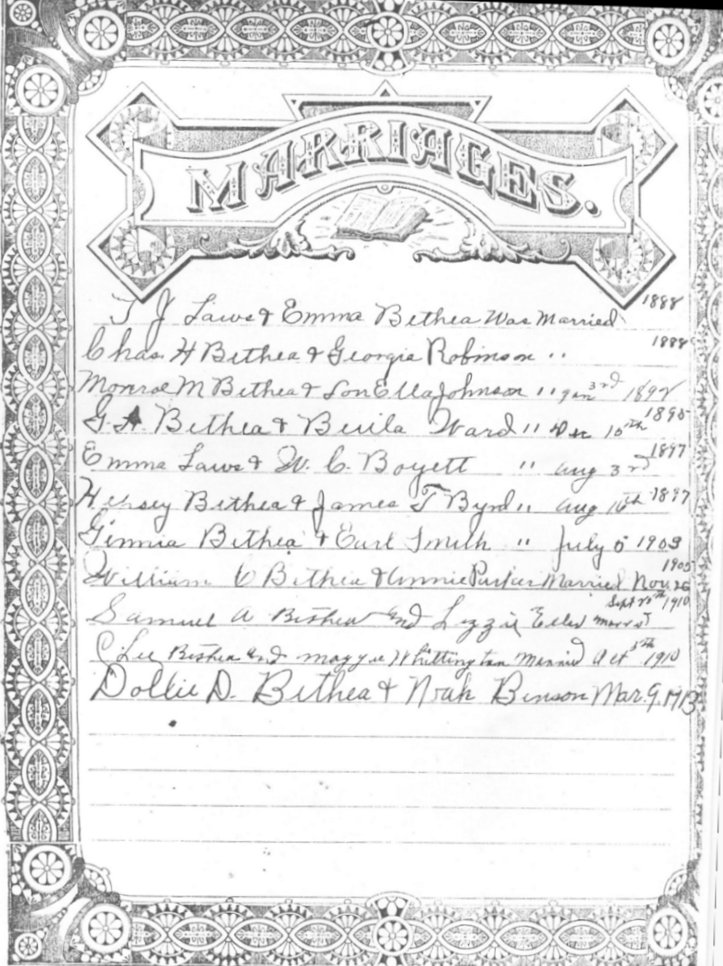 MARRIAGES.
T J Laws & Emma Bethea Was Married 1888
Chas. H Bethea & Georgia Robinson " 1888
Monroe M Bethea & Lon Ella Johnson " Jan 3rd 1892
G. A. Bethea & Beula Ward " Dec 10th 1895
Emma Laws & W. C. Boyett " Aug 3rd 1897
Hersey Bethea & James T Byrd " Aug 16th 1897
Ginnia Bethea & Earl Smith " July 5 1903
William C Bethea & Annie Parker Married Nov 26 1905
Samuel A Bethea and Lizzie Married Sept 1910
C Lee Bethea and Maggie Whittington Married Oct 5th 1910
Dollie D. Bethea & Noah Benson Mar. 9, 1913